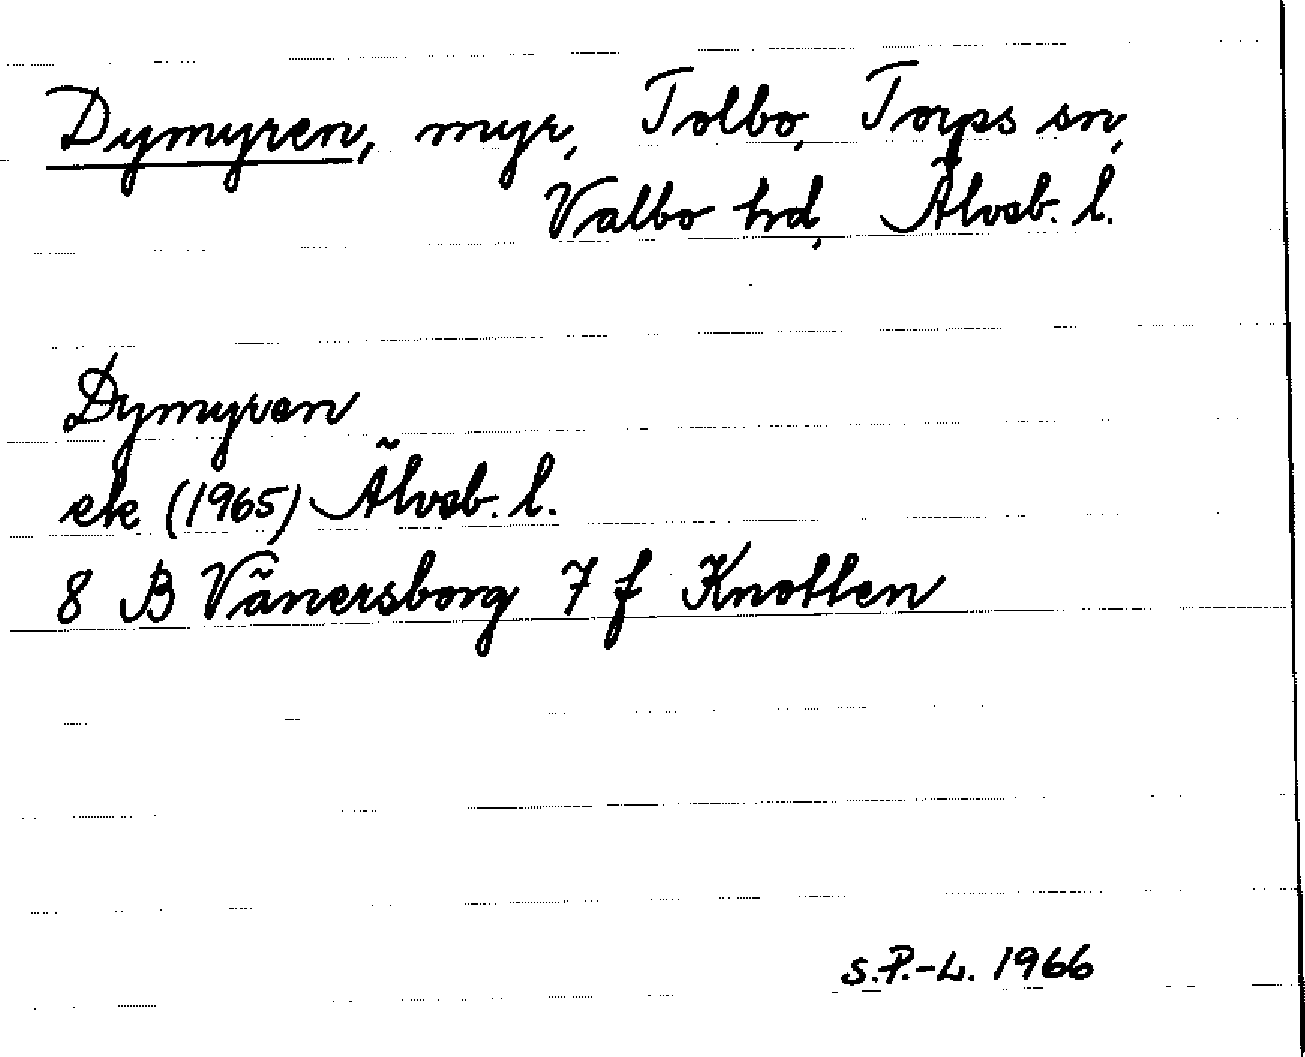 Dymyren, myr, Tolbo, Torps sn,
Valbo hd, Älvsb. l.
Dymyren
ek (1965) Älvsb. l.
8 B Vänersborg 7 f Knotten
S.P.-L. 1966